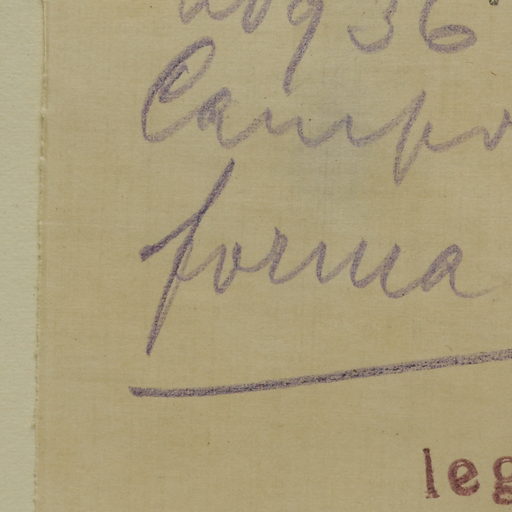 36
Campo
forma
leg